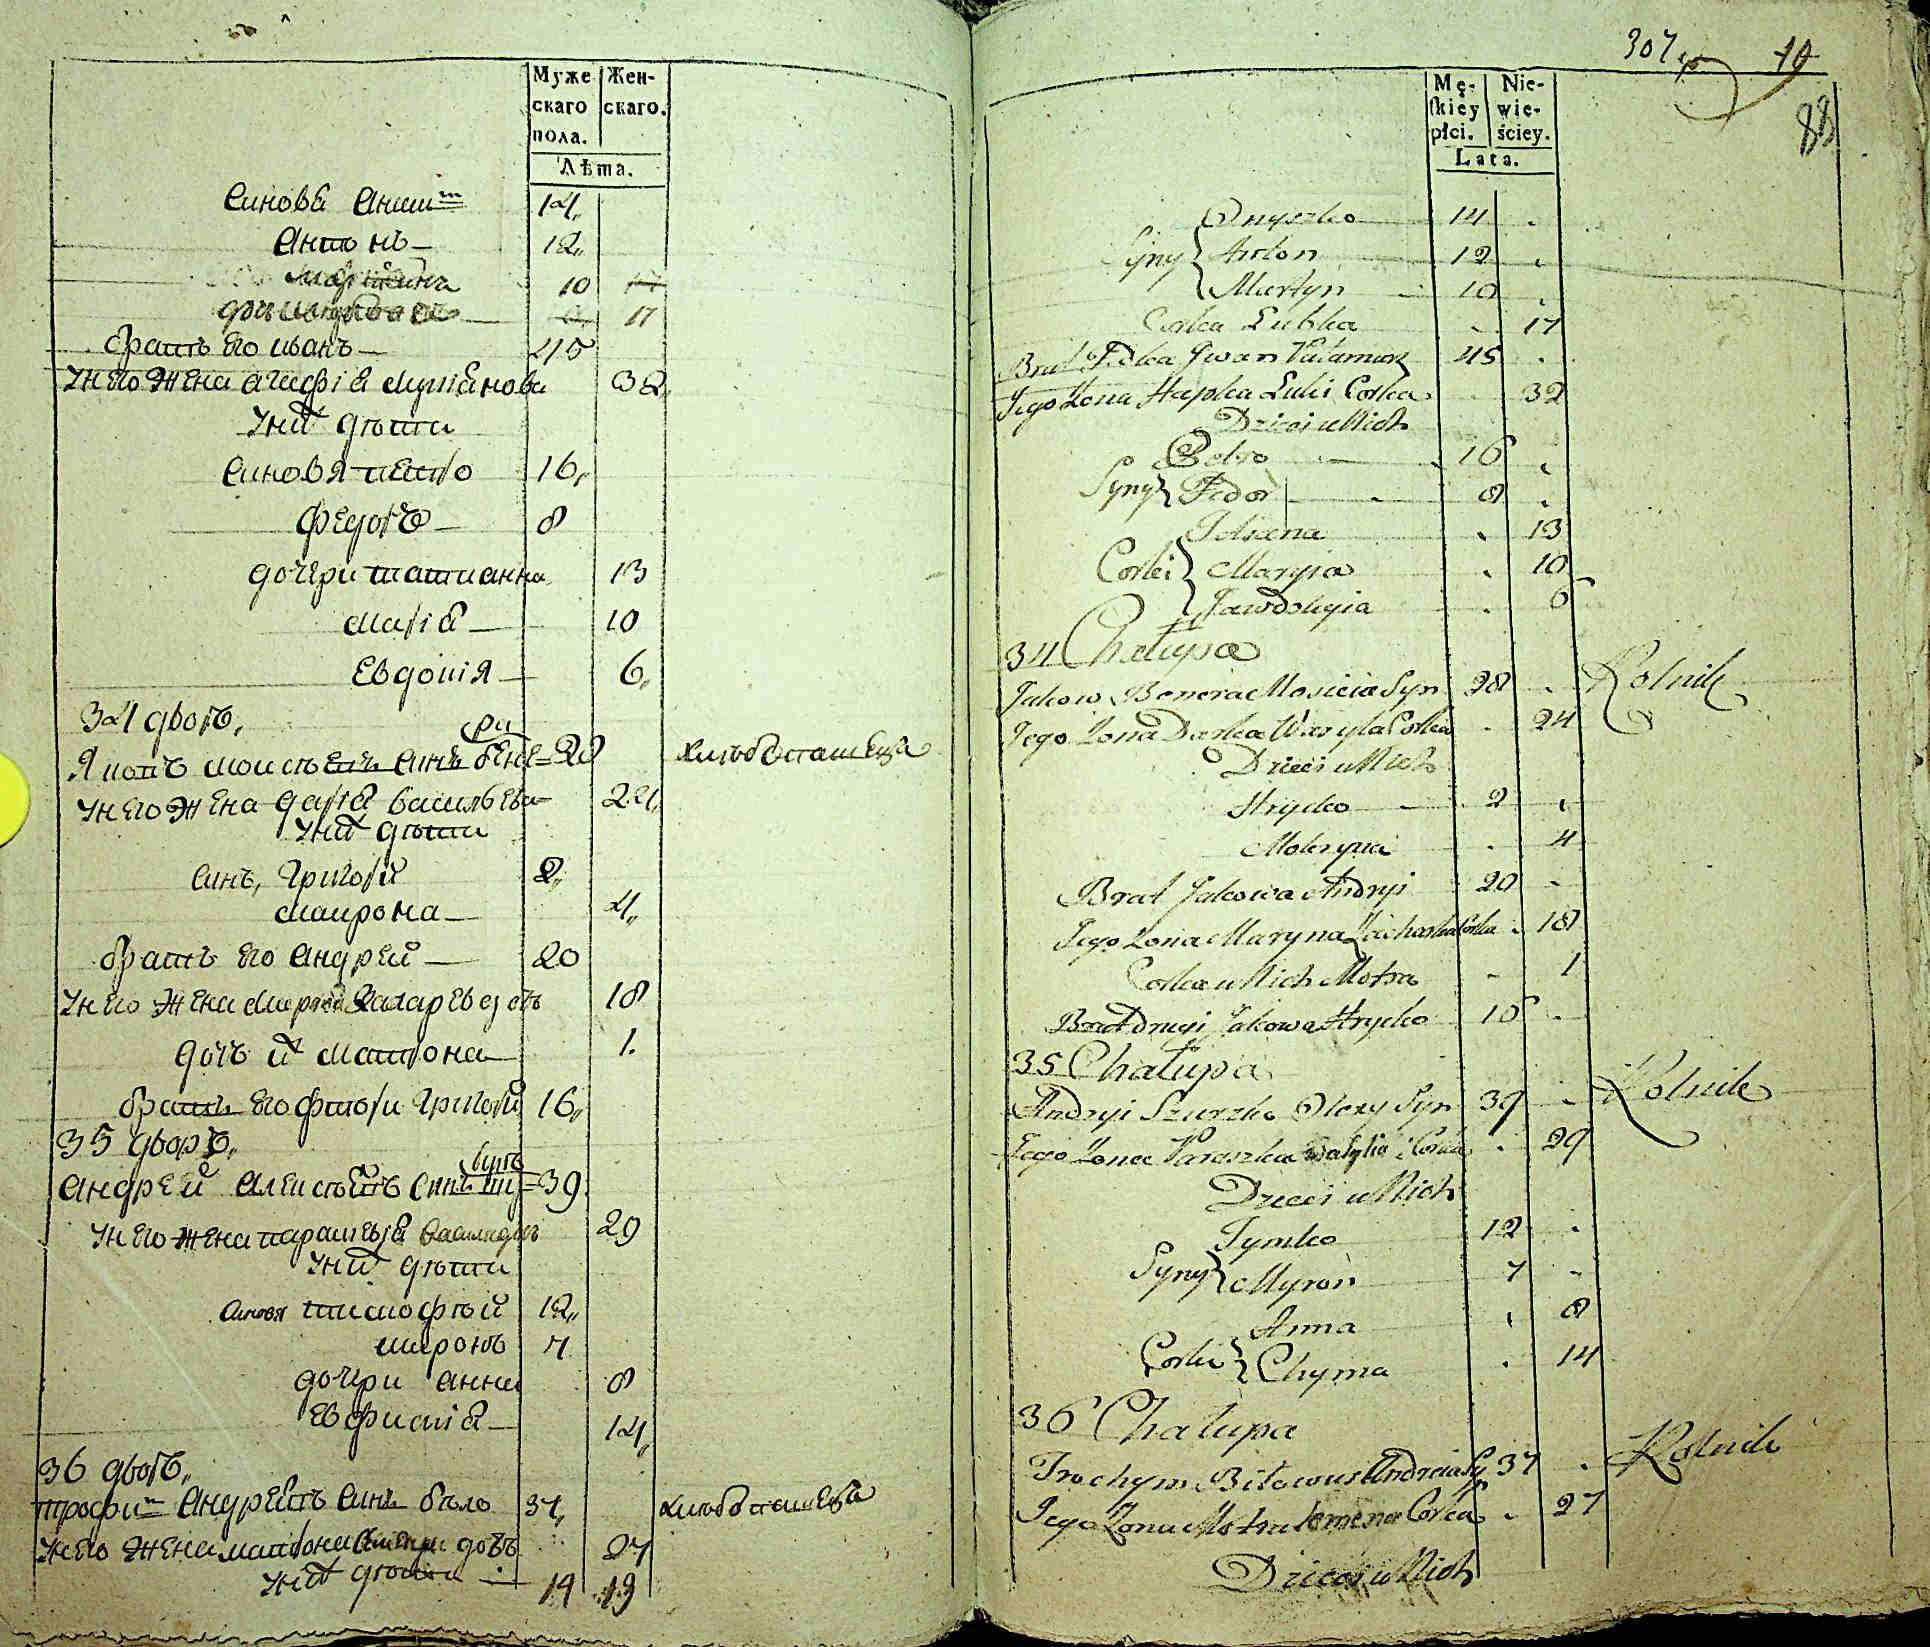 Муже скаго пола.
Жен- скаго.
Лѣта.
синовя Аним 14
Антонъ 12
Мартинъ 10
17
братъ его иванъ 45
у него жена агафія лукіянова 32
у них дѣти
синовя петро 16
Федоръ 8
дочери татианна 13
Марія 10
Евдокія 6
34 дворъ
Яковъ моисѣевъ синъ бене=ра 28 хлѣбопашецъ
у него жена дарія васильева 24
у них дѣти
синъ, григорій 2
макрона 4
братъ его андрей 20
у него жена марина захарьева 18
дочь их матрона 1.
братъ его фторы григорій 16
35 дворъ
андрей алексѣевъ синъ 39
у него жена параскевія 29
у них дѣти
синовя тимофѣй 12
миронъ 7
дочери анна 8
Евфимія 14
36 дворъ
трофим андрѣевъ синъ бѣло 37 хлѣбопашецъ
у него жена матрона дочь 27
у них дѣти
19 19
307 19
88
Mę- skiey płci.
Nie- wie- ściey.
Lata.
Onyszko 14
Syny Anton 12
Martyn 10
Corka Lubka 17
Brat Fedka Jwan 45
Jego Żona Hapka Luki Corka 32
Dzieci u Nich
Petro 16
Syny Fedor 8
Tetiana 13
Corki Maryia 10
Jawdokyia 6
34 Chałupa
Jakow Benera Mosieia Syn 28 Rolnik
Jego Żona Darka Wasyla Corka 24
Dzieci u Nich
Hryćko 2
Mokryna 4
Brat Jakowa Andryi 20
Jego Żona Maryna Zacharka Corka 18
Corka u Nich Motra 1
Brat drugi Jakowa Hryćko 16
35 Chałupa
Andryi Szurzko Olexy Syn 39 Rolnik
Jego Żona Paraszka Wasylia Corka 29
Dzieci u Nich
Tymko 12
Syny Myron 7
Anna 8
Corki Chyma 14
36 Chałupa
Trochym Biłowus Andreia Syn 37 Rolnik
Jego Żona Motra Semena Corka 27
Dzieci u Nich